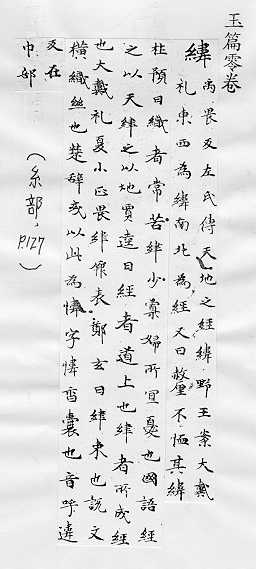 玉篇零卷
緯 禹畏反左氏傳天地之經緯野王案大戴
礼東西為緯南北為經又曰嫠不恤其緯
杜預曰織者常苦緯少寡婦所宜憂也國語經
之以天緯之以地賈逵曰經者道上也緯者所成經
也大戴礼夏小正畏緯 表鄭玄曰緯束也說文
橫織絲也楚辭或以此為 字 乖裹也音呼違
反在
巾部
(糸部，P127)